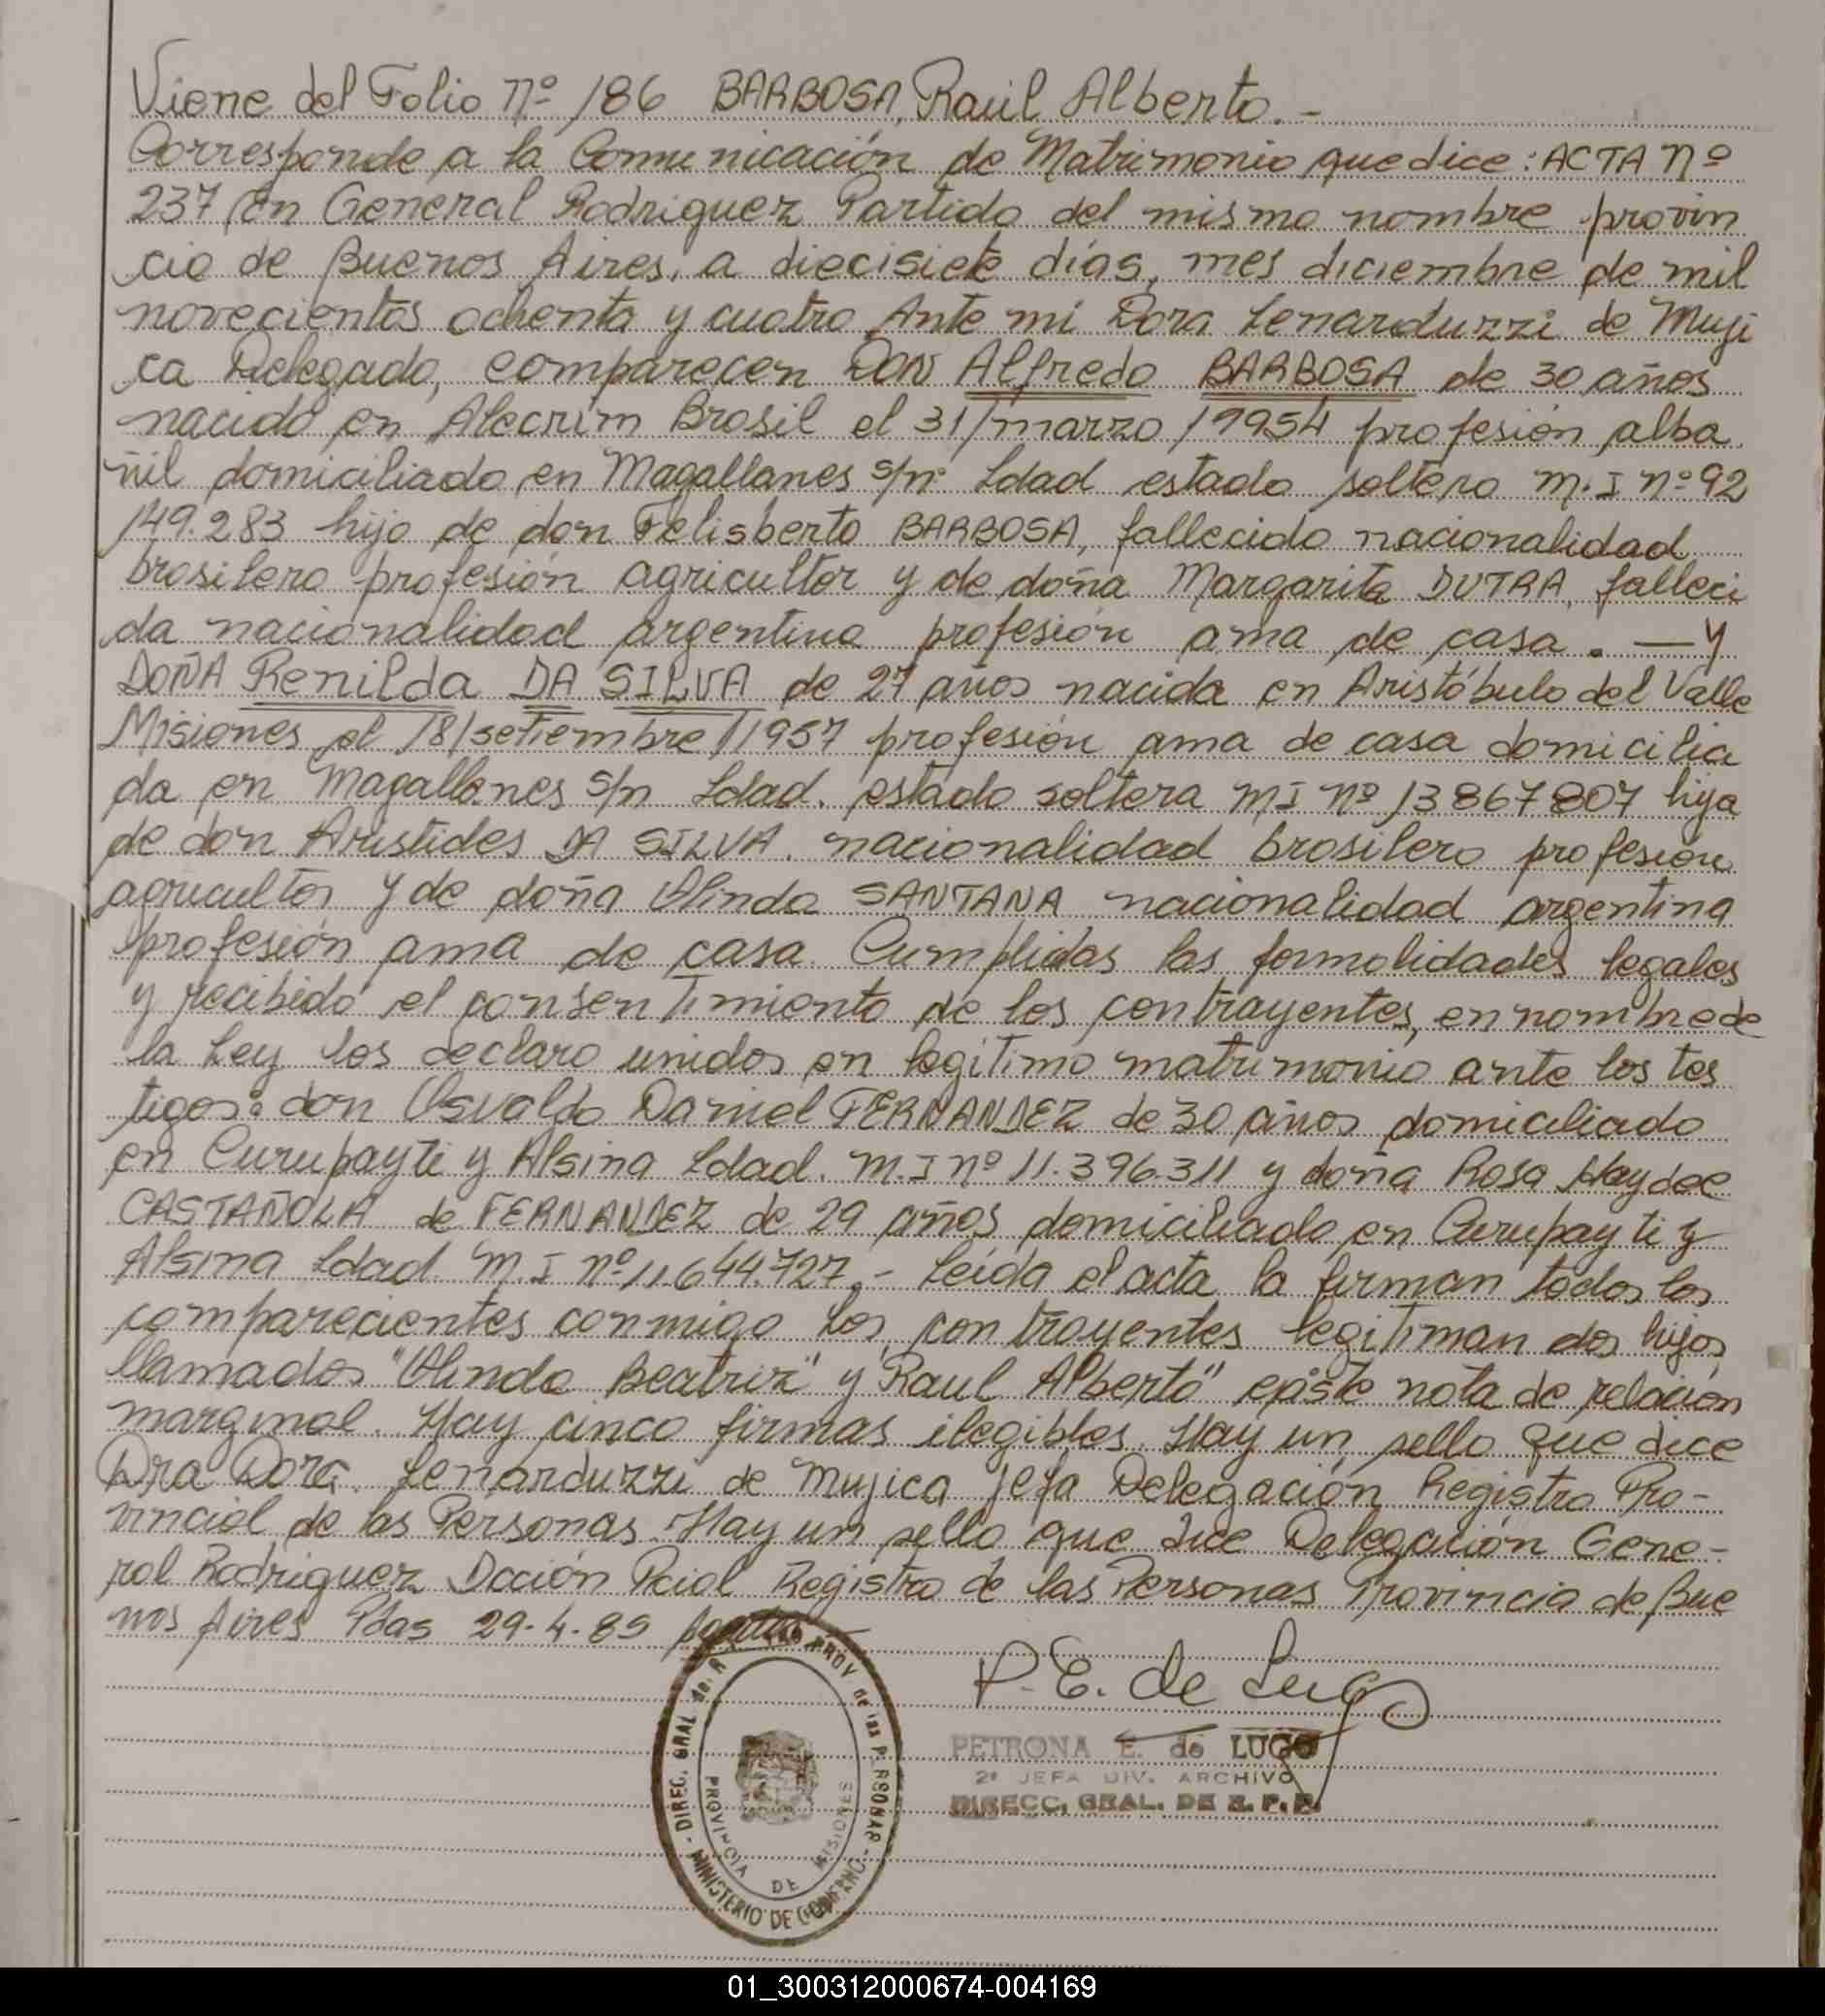 Viene del Folio Nº 186 BARBOSA, Raúl Alberto. -
Corresponde a la Comunicación de Matrimonio que dice: ACTA Nº
237 En General Rodriguez Partido del mismo nombre provin
cia de Buenos Aires, a diecisiete días, mes diciembre de mil
novecientos ochenta y cuatro Ante mi Dora Lenarduzzi de Muji
ca Delegado, comparecen DON Alfredo BARBOSA de 30 años
nacido en Alecrim Brasil el 31/marzo/1954 profesión alba
ñil domiciliado en Magallanes s/nº Ldad estado soltero M.I nº 92
149.283 hijo de don Felisberto BARBOSA, fallecido nacionalidad
brasilero profesión agricultor y de doña Margarita DUTRA, falleci
da nacionalidad argentina profesión ama de casa. — y
DOÑA Renilda DA SILVA de 27 años nacida en Aristóbulo del Valle
Misiones el 18/setiembre/1957 profesión ama de casa domicilia
da en Magallanes s/n Ldad. estado soltera MI Nº 13867807 hija
de don Aristides DA SILVA. nacionalidad brasilero profesión
agricultor y de doña Olinda SANTANA nacionalidad argentina
profesión ama de casa. Cumplidas las formalidades legales
y recibido el consentimiento de los contrayentes, en nombre de
la Ley los declaro unidos en legítimo matrimonio ante los tes
tigos: don Osvaldo Daniel FERNANDEZ de 30 años domiciliado
en Curupayti y Alsina Ldad. M.I nº 11.396.311 y doña Rosa Haydee
CASTAÑOLA de FERNANDEZ de 29 años domiciliada en Curupayti y
Alsina Ldad M.I nº 11.644.727.- Leída el acta la firman todos los
comparecientes conmigo Los contrayentes legitiman dos hijos
llamados "Olinda Beatriz" y "Raul Alberto" existe nota de relación
marginal. Hay cinco firmas ilegibles. Hay un sello que dice
Dra Dora. Lenarduzzi de Mujica Jefa Delegación Registro Pro-
vincial de las Personas. Hay un sello que dice Delegación Gene-
ral Rodriguez Dcción Pcial Registro de las Personas Provincia de Bue
nos Aires Pdas 29-4-85
P. E. de Lugo
PETRONA E. de LUGO
2ª JEFA DIV. ARCHIVO
DIRECC. GRAL. DE R. P. P.
DIREC. GRAL de PROV de las PERSONAS - MINISTERIO DE GOBIERNO
PROVINCIA DE MISIONES
01_300312000674-004169